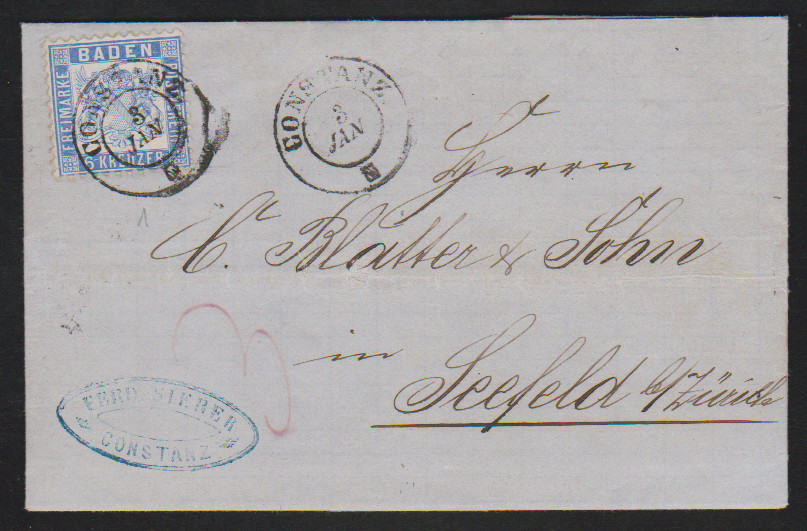 BADEN
FREIMARKE
6 KREUZER
CONSTANZ
3
JAN
CONSTANZ
3
JAN
Herrn
C. Blatter & Sohn
in
Seefeld b/Zürich
1
3
FERD. SIEBER
CONSTANZ